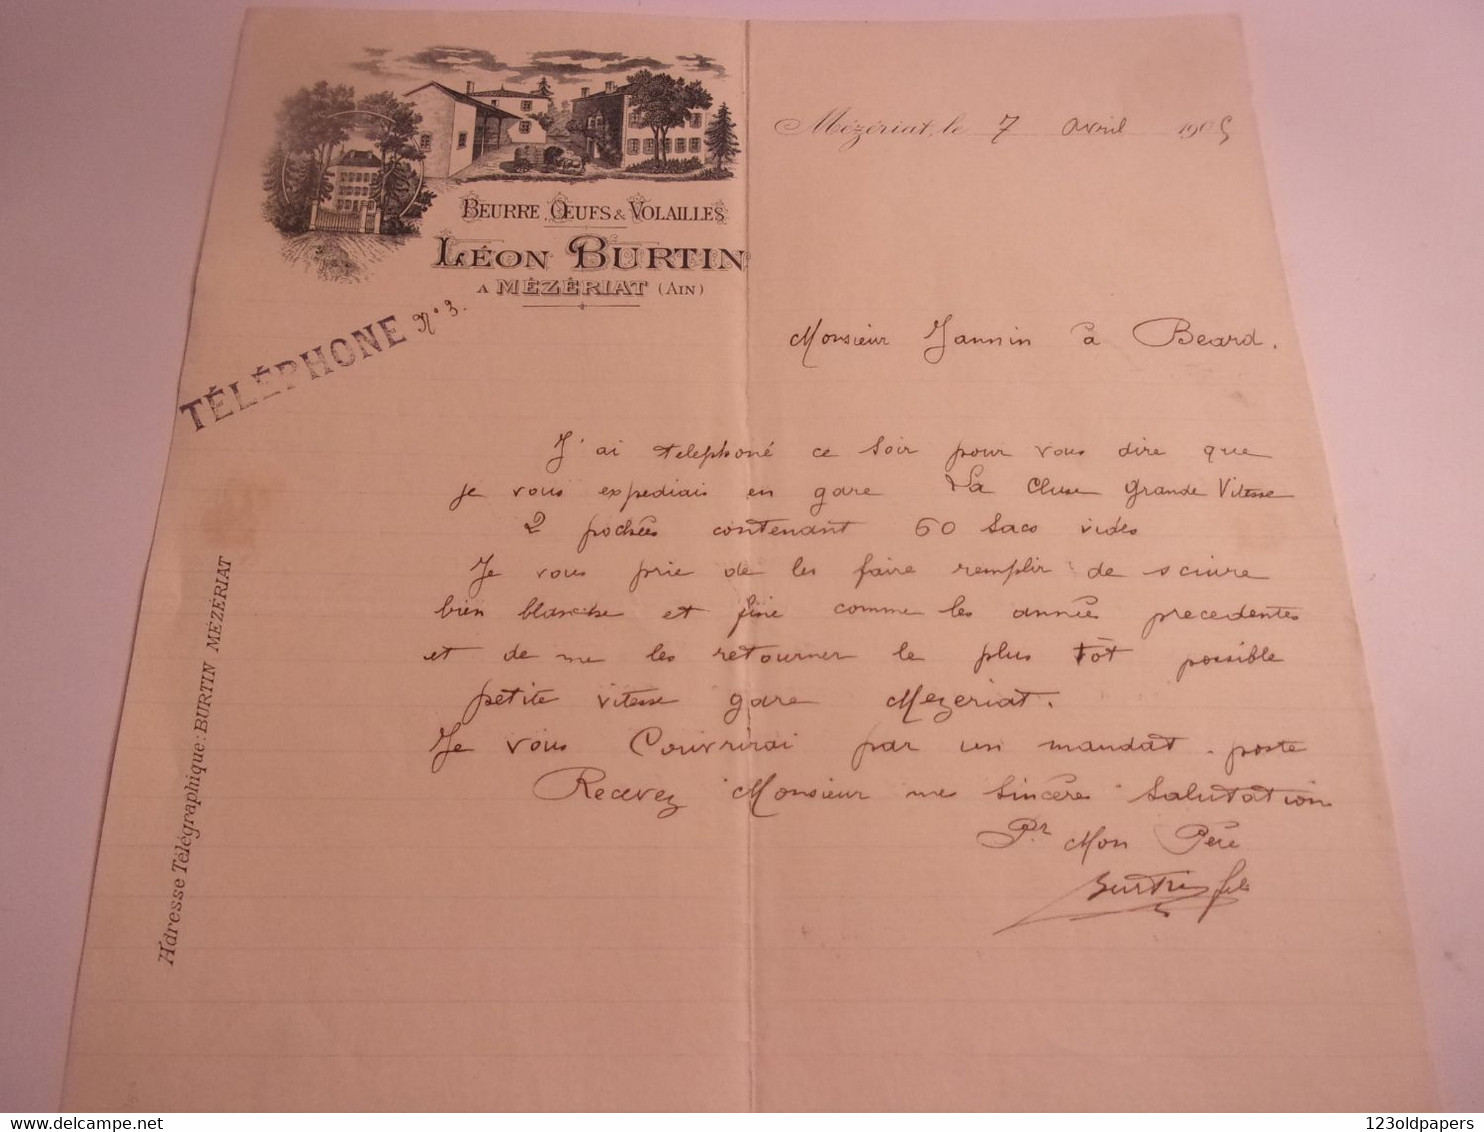 Mézériat, le 7 avril 1905
BEURRE, ŒUFS & VOLAILLES
LÉON BURTIN
A MÉZÉRIAT (AIN)
TÉLÉPHONE N° 3.
Adresse Télégraphique: BURTIN MÉZÉRIAT
Monsieur Jannin à Beard.
J'ai telephoné ce soir pour vous dire que
je vous expediais en gare La Cluse Grande Vitesse
2 pochées contenant 60 sacs vides
Je vous prie de les faire remplir de sciure
bien blanche et fine comme les années precedentes
et de me les retourner le plus tôt possible
petite vitesse gare Mezeriat.
Je vous Couvrirai par un mandat-poste
Recevez Monsieur mes sincères salutation
Pr Mon Père
Burtin fils
123oldpapers